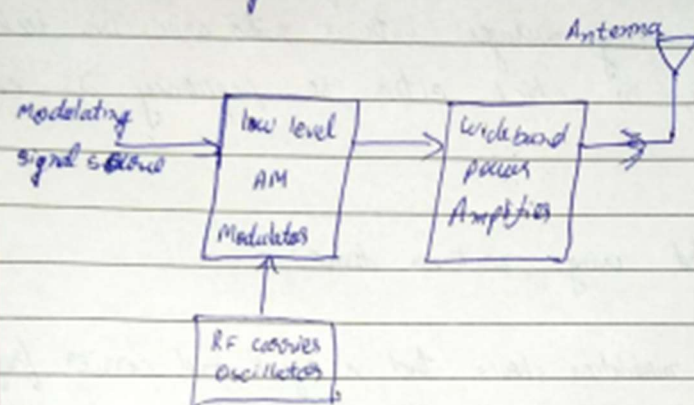 Antenna
Modulating
signal source
low level
AM
Modulator
wideband
power
Amplifier
RF carrier
oscillator